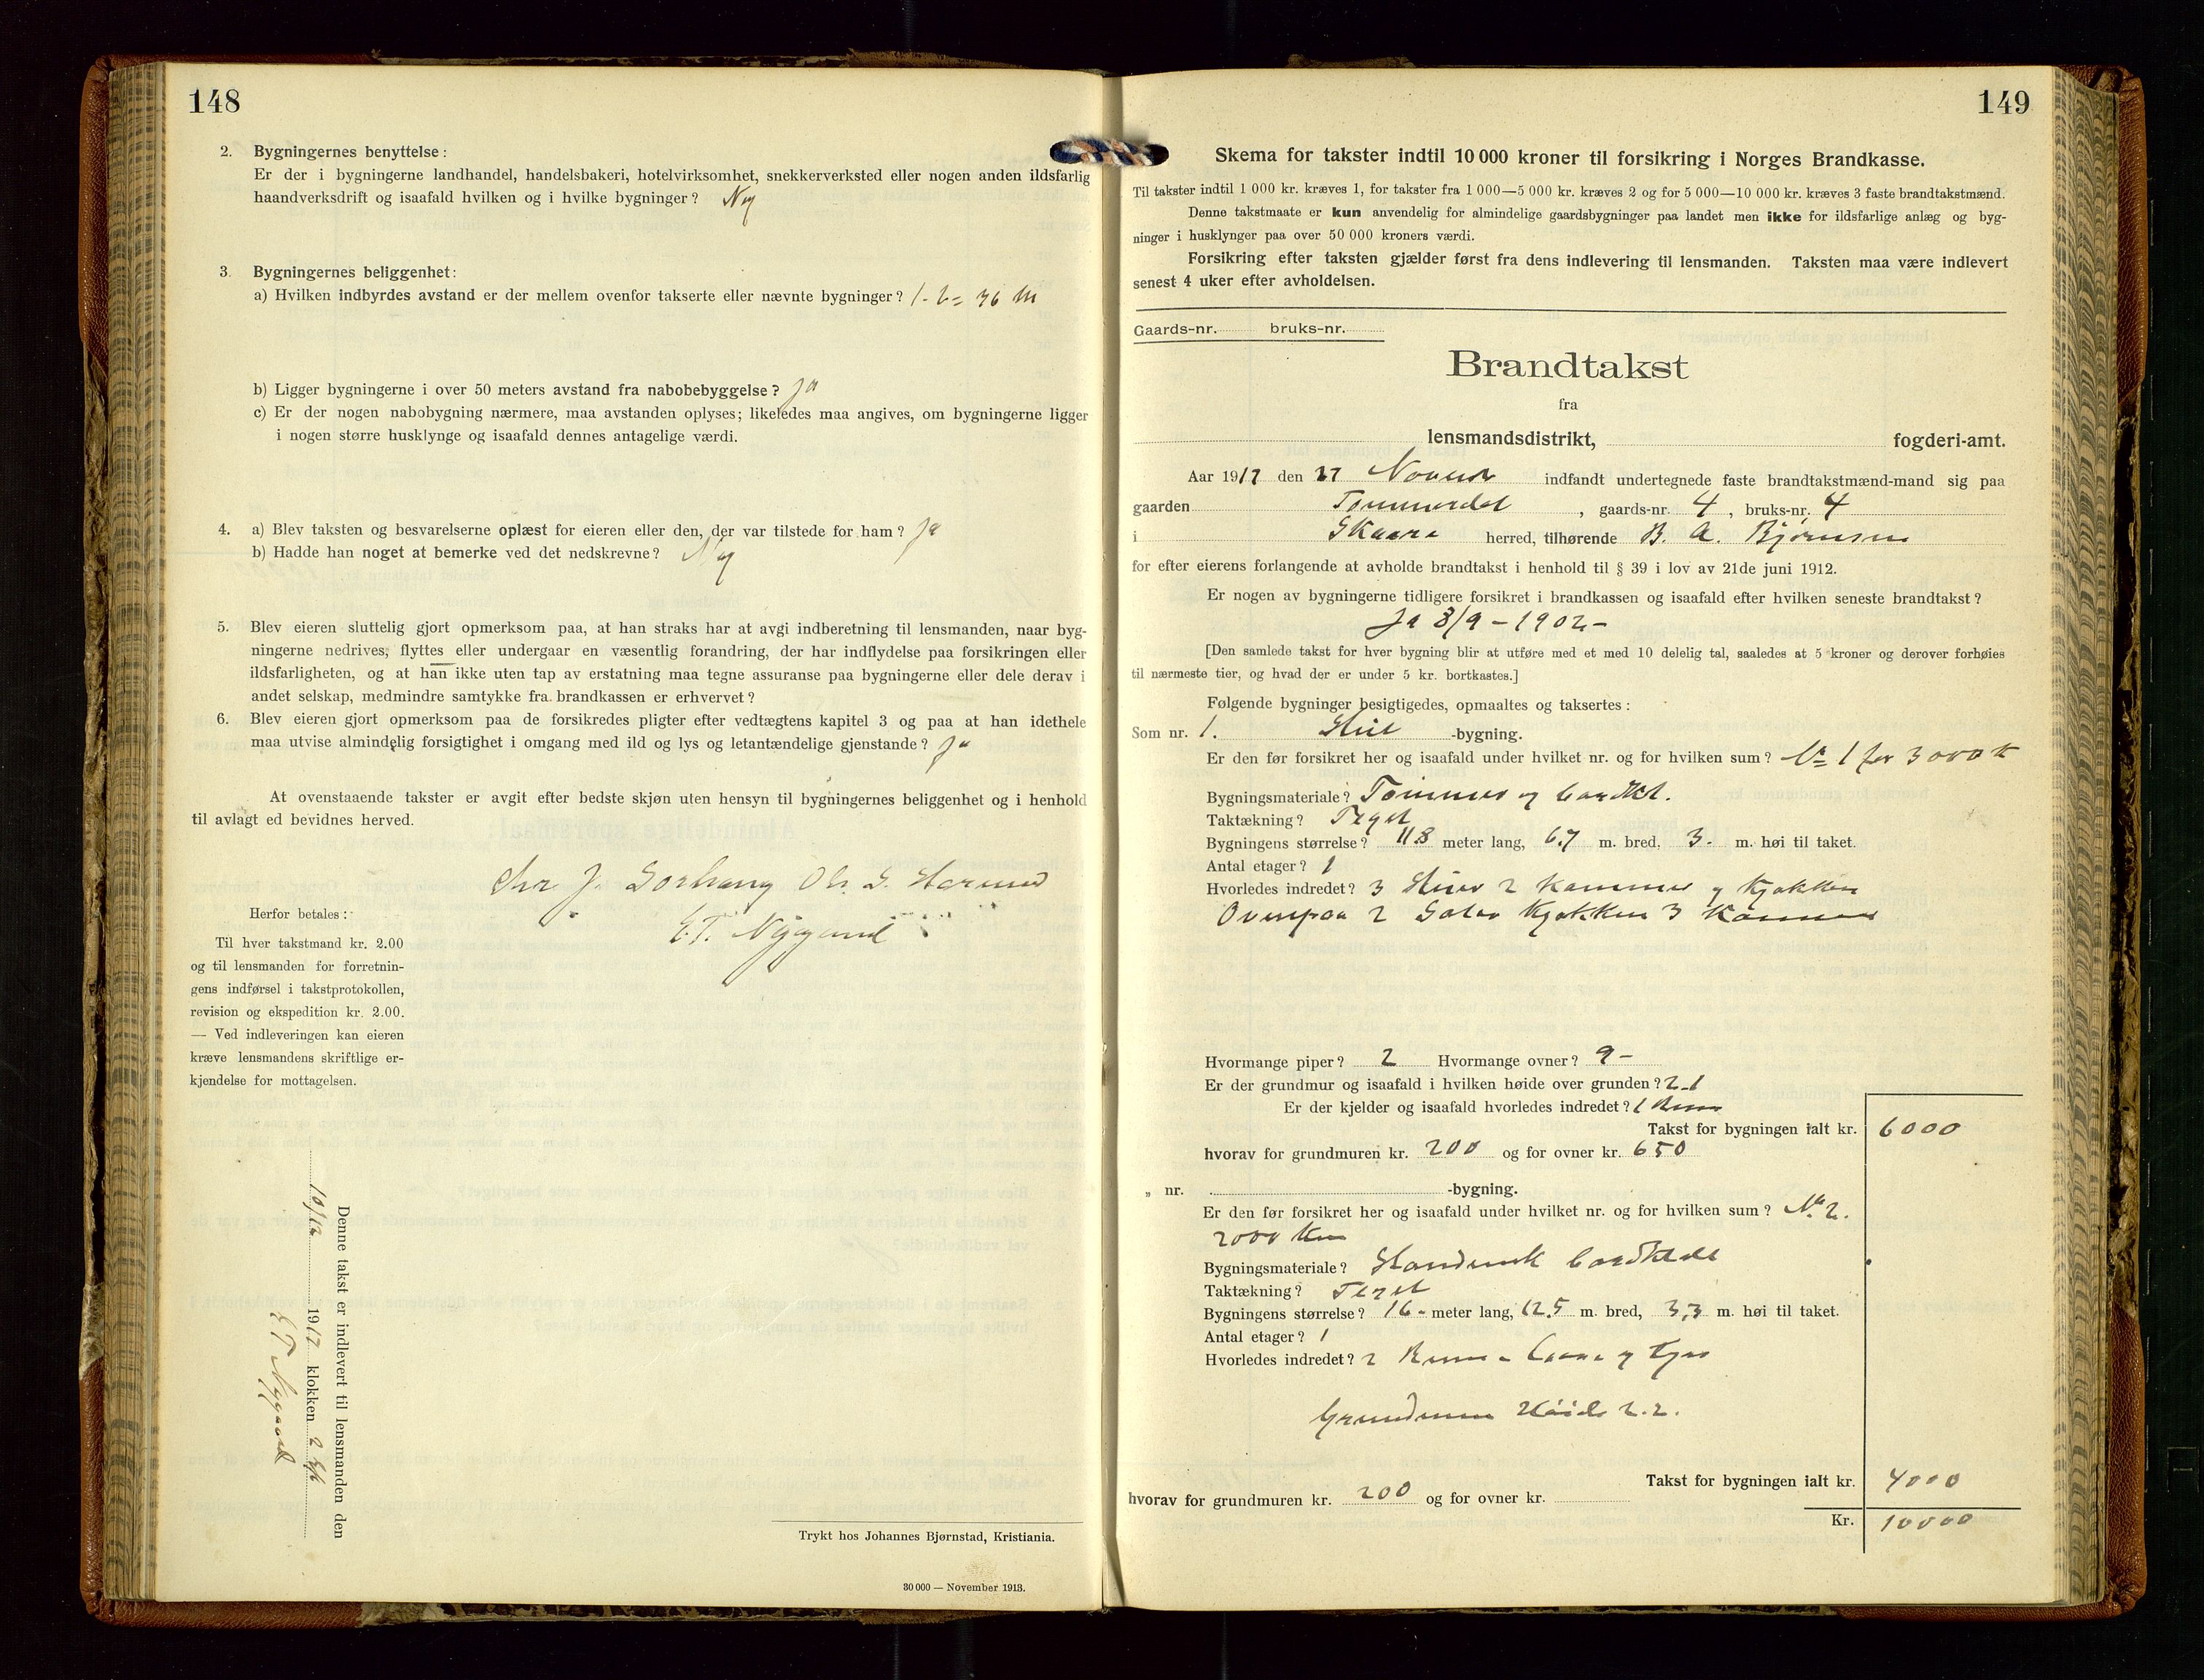 148
2. Bygningernes benyttelse:
Er der i bygningerne landhandel, handelsbakeri, hotelvirksomhet, snekkerverksted eller nogen anden ildsfarlig
haandverksdrift og isaafald hvilken og i hvilke bygninger? Nei
3. Bygningernes beliggenhet:
a) Hvilken indbyrdes avstand er der mellem ovenfor takserte eller nævnte bygninger? 1-2= 36 m
b) Ligger bygningerne i over 50 meters avstand fra nabobebyggelse? Ja
c) Er der nogen nabobygning nærmere, maa avstanden oplyses; likeledes maa angives, om bygningerne ligger
i nogen større husklynge og isaafald dennes antagelige værdi.
4. a) Blev taksten og besvarelserne oplæst for eieren eller den, der var tilstede for ham? Ja
b) Hadde han noget at bemerke ved det nedskrevne? Nei
5. Blev eieren sluttelig gjort opmerksom paa, at han straks har at avgi indberetning til lensmanden, naar byg-
ningerne nedrives, flyttes eller undergaar en væsentlig forandring, der har indflydelse paa forsikringen eller
ildsfarligheten, og at han ikke uten tap av erstatning maa tegne assuranse paa bygningerne eller dele derav i
andet selskap, medmindre samtykke fra brandkassen er erhvervet?
6. Blev eieren gjort opmerksom paa de forsikredes pligter efter vedtægtens kapitel 3 og paa at han idethele
maa utvise almindelig forsigtighet i omgang med ild og lys og letantændelige gjenstande? Ja
At ovenstaaende takster er avgit efter bedste skjøn uten hensyn til bygningernes beliggenhet og i henhold
til avlagt ed bevidnes herved.
J. Ole G.
E.T. Nygaard
Herfor betales:
Til hver takstmand kr. 2.00
og til lensmanden for forretnin-
gens indførsel i takstprotokollen,
revision og ekspedition kr. 2.00.
— Ved indleveringen kan eieren
kræve lensmandens skriftlige er-
kjendelse for mottagelsen.
Denne takst er indlevert til lensmanden den
10/12 1917 klokken 2
E T Nygaard
Trykt hos Johannes Bjørnstad, Kristiania.
30 000 — November 1913.
149
Skema for takster indtil 10 000 kroner til forsikring i Norges Brandkasse.
Til takster indtil 1 000 kr. kræves 1, for takster fra 1 000—5 000 kr. kræves 2 og for 5 000—10 000 kr. kræves 3 faste brandtakstmænd.
Denne takstmaate er kun anvendelig for almindelige gaardsbygninger paa landet men ikke for ildsfarlige anlæg og byg-
ninger i husklynger paa over 50 000 kroners værdi.
Forsikring efter taksten gjælder først fra dens indlevering til lensmanden. Taksten maa være indlevert
senest 4 uker efter avholdelsen.
Gaards-nr. bruks-nr.
Brandtakst
fra
lensmandsdistrikt, fogderi-amt.
Aar 1917 den 27 Novembr indfandt undertegnede faste brandtakstmænd-mand sig paa
gaarden Tømmerdal, gaards-nr. 4, bruks-nr. 4
i Skaare herred, tilhørende B. A. Bjørnsen
for efter eierens forlangende at avholde brandtakst i henhold til § 39 i lov av 21de juni 1912.
Er nogen av bygningerne tidligere forsikret i brandkassen og isaafald efter hvilken seneste brandtakst?
Ja 8/9 - 1902 -
[Den samlede takst for hver bygning blir at utføre med et med 10 delelig tal, saaledes at 5 kroner og derover forhøies
til nærmeste tier, og hvad der er under 5 kr. bortkastes.]
Følgende bygninger besigtigedes, opmaaltes og taksertes:
Som nr. 1. -bygning.
Er den før forsikret her og isaafald under hvilket nr. og for hvilken sum? No 1 for 3000 kr
Bygningsmateriale? Tømmer og bordkl.
Taktækning? Tegel
Bygningens størrelse? 11.8 meter lang, 6.7 m. bred, 3. m. høi til taket.
Antal etager? 1
Hvorledes indredet? 3 Stuer 2 Kammer og Kjøkken
Ovenpaa 2 Saler Kjøkken 3 Kammer
Hvormange piper? 2 Hvormange ovner? 9 -
Er der grundmur og isaafald i hvilken høide over grunden? 2.1
Er der kjelder og isaafald hvorledes indredet? 1 Rum
Takst for bygningen ialt kr. 6000
hvorav for grundmuren kr. 200 og for ovner kr. 650
„ nr. -bygning.
Er den før forsikret her og isaafald under hvilket nr. og for hvilken sum? No 2.
2000 Kr
Bygningsmateriale? Standverk bordklædt
Taktækning? Tegel
Bygningens størrelse? 16 - meter lang, 12.5 m. bred, 3,3 m. høi til taket.
Antal etager? 1
Hvorledes indredet? 2 Rum - Laave og Fjøs
Grundmur Høide 2.2.
Takst for bygningen ialt kr. 4000
hvorav for grundmuren kr. 200 og for ovner kr.
Kr. 10000